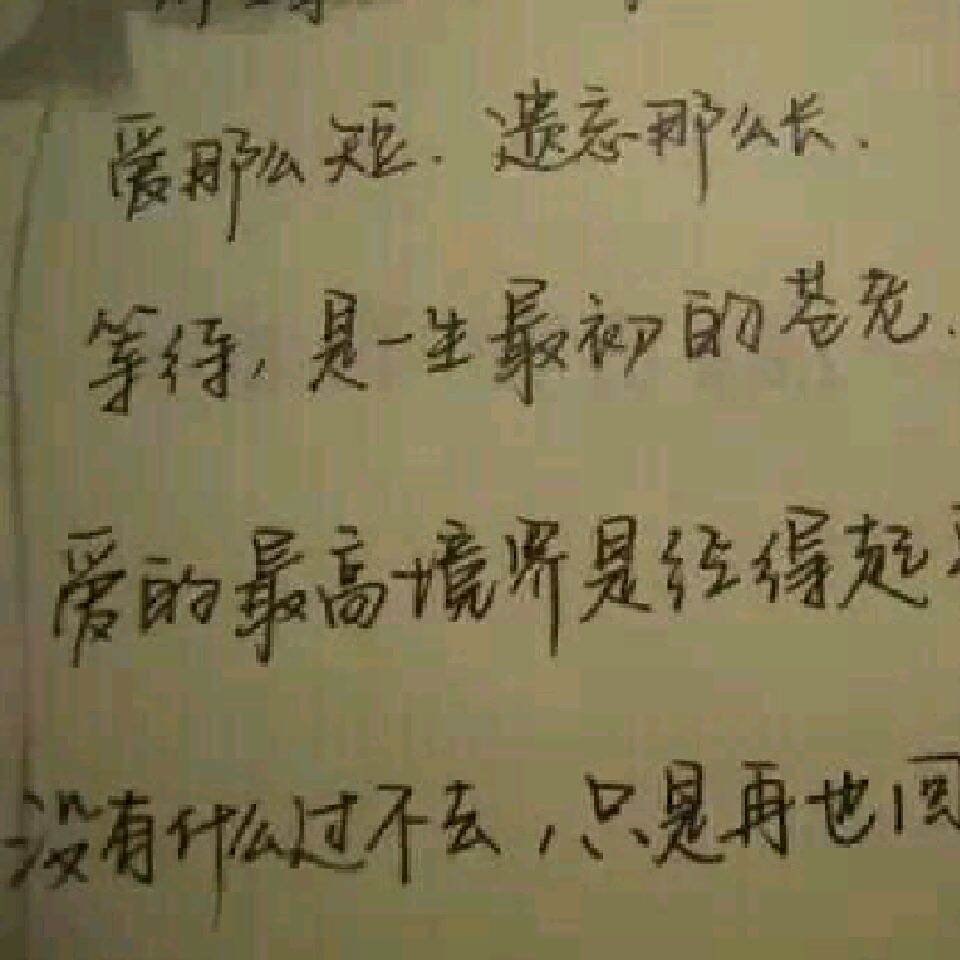 爱那么短. 遗忘那么长.
等待, 是一生最初的苍老.
爱的最高境界是经得起
没有什么过不去, 只是再也回